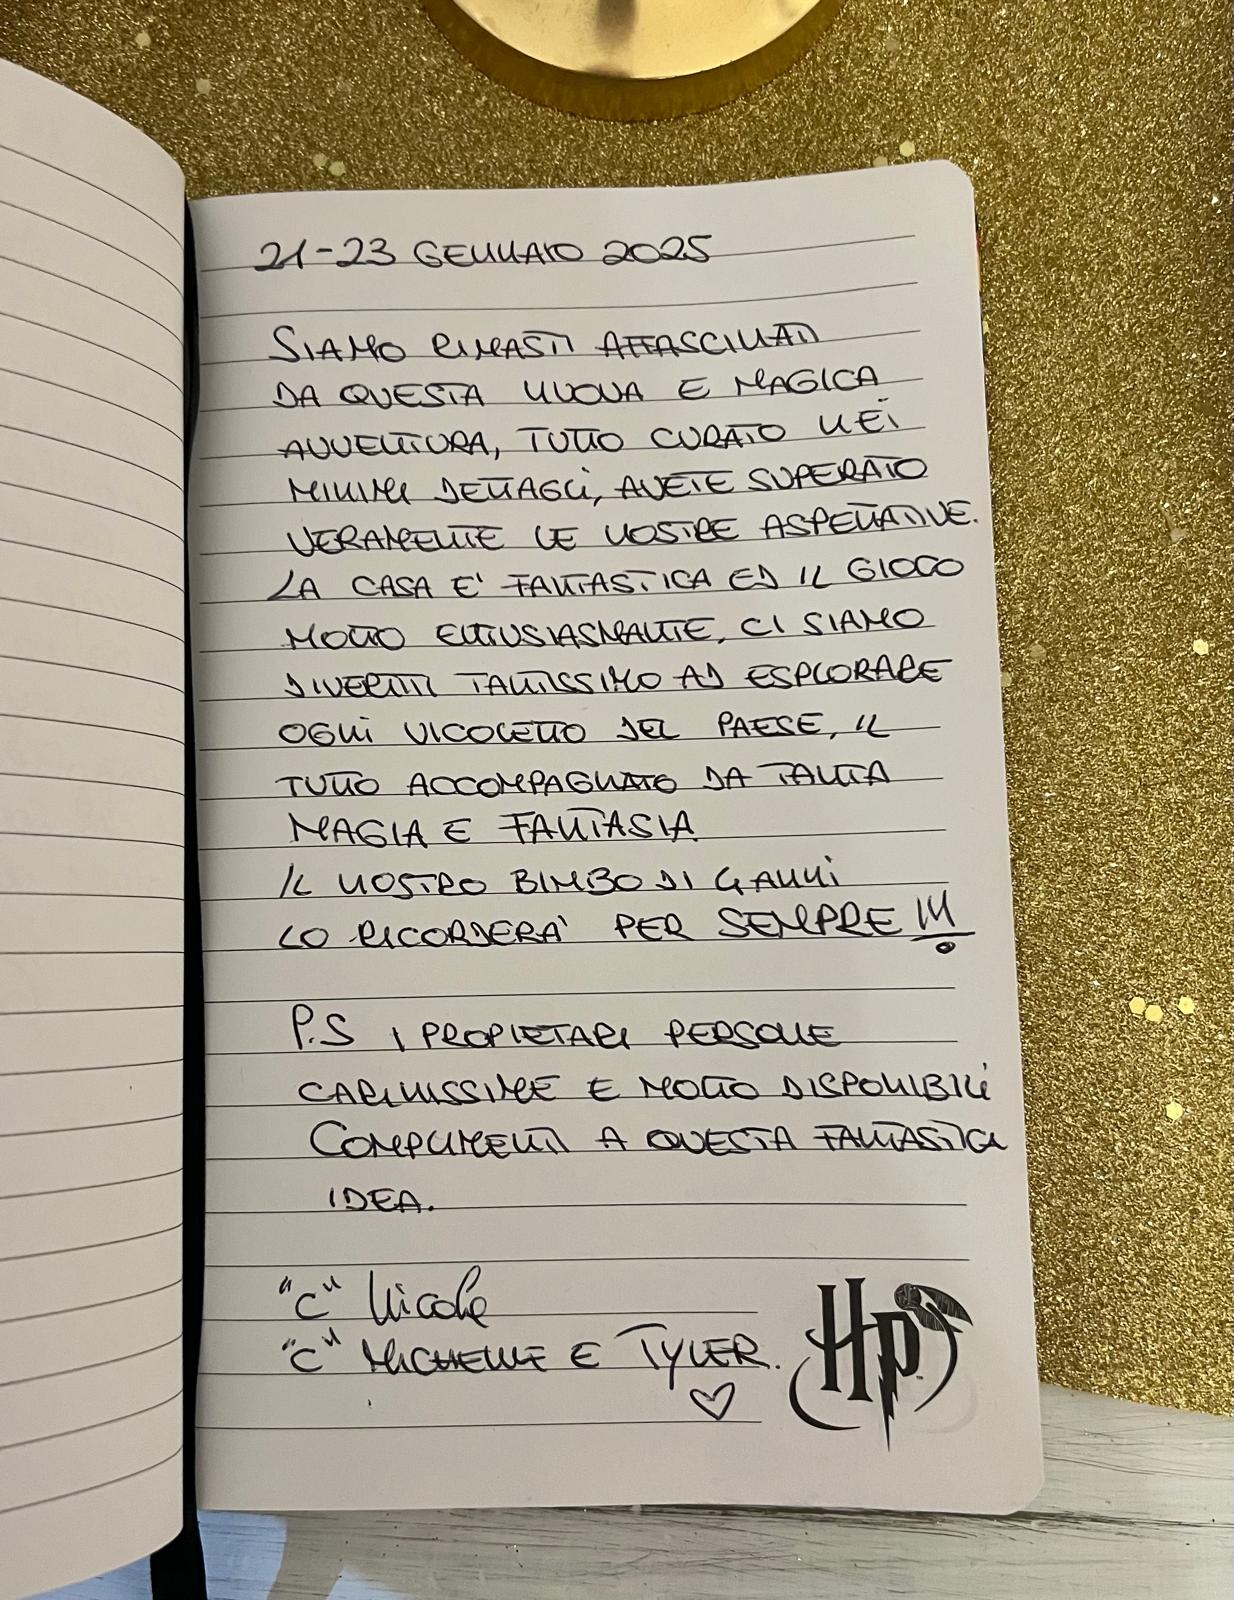 21-23 GENNAIO 2025
SIAMO RIMASTI AFFASCINATI
DA QUESTA NUOVA E MAGICA
AVVENTURA, TUTTO CURATO NEI
MINIMI DETTAGLI, AVETE SUPERATO
VERAMENTE LE NOSTRE ASPETTATIVE.
LA CASA E' FANTASTICA ED IL GIOCO
MOLTO ENTUSIASMANTE, CI SIAMO
DIVERTITI TANTISSIMO AD ESPLORARE
OGNI VICOLETTO DEL PAESE, IL
TUTTO ACCOMPAGNATO DA TANTA
MAGIA E FANTASIA
IL NOSTRO BIMBO DI 4 ANNI
LO RICORDERA' PER SEMPRE !!!
P.S I PROPIETARI PERSONE
CARINISSIME E MOLTO DISPONIBILI
COMPLIMENTI A QUESTA FANTASTICA
IDEA.
"C" Nicole
"C" MICHELLE E TYLER.
HP